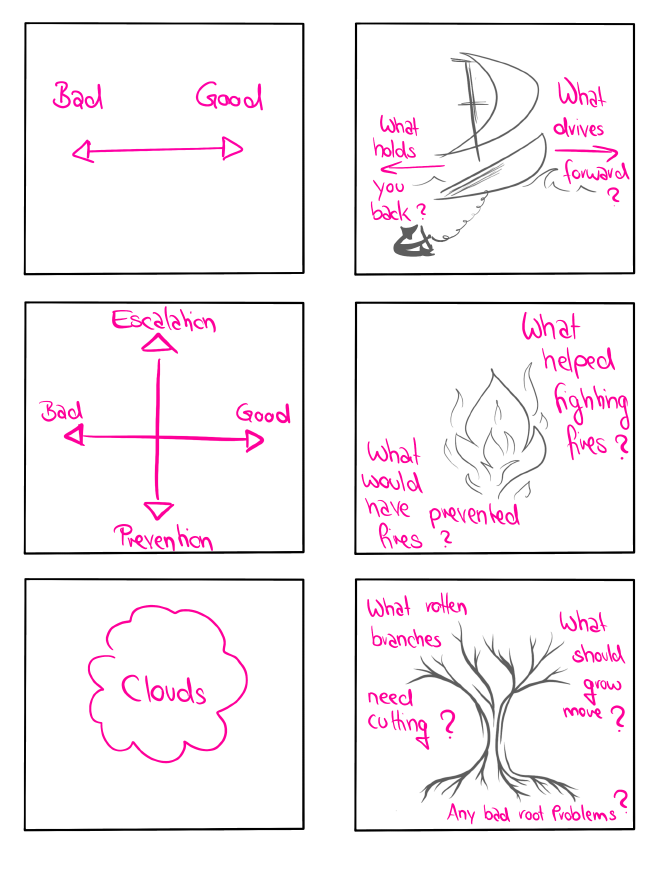 Bad Good
What
holds
you
back?
What
drives
forward
?
Escalation
Bad Good
Prevention
What
helped
fighting
fires?
What
would
have prevented
fires ?
Clouds
What rotten
branches
need
cutting ?
What
should
grow
more ?
Any bad root Problems ?